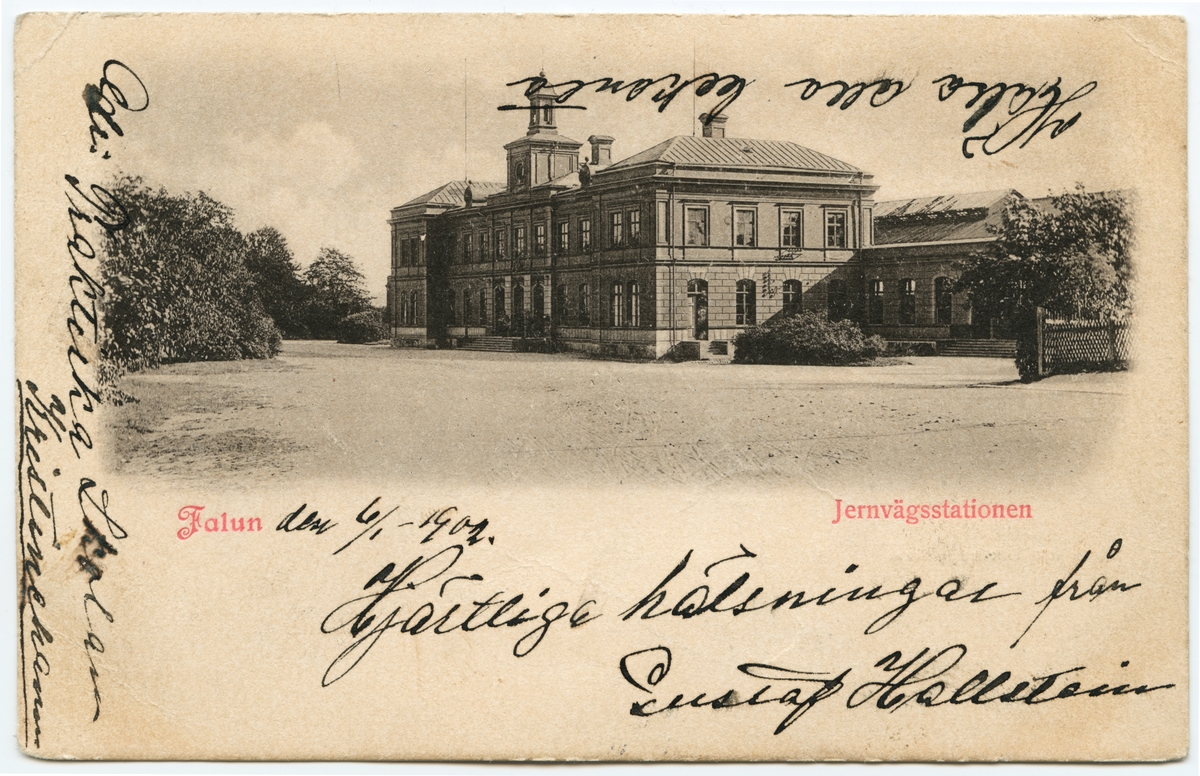 Hälsa alla bekanta
Falun den 6/1-1902.
Jernvägsstationen
Hjärtliga hälsningar från
Gustaf Hallstein
Praktiska Skolan
Kristinehamn